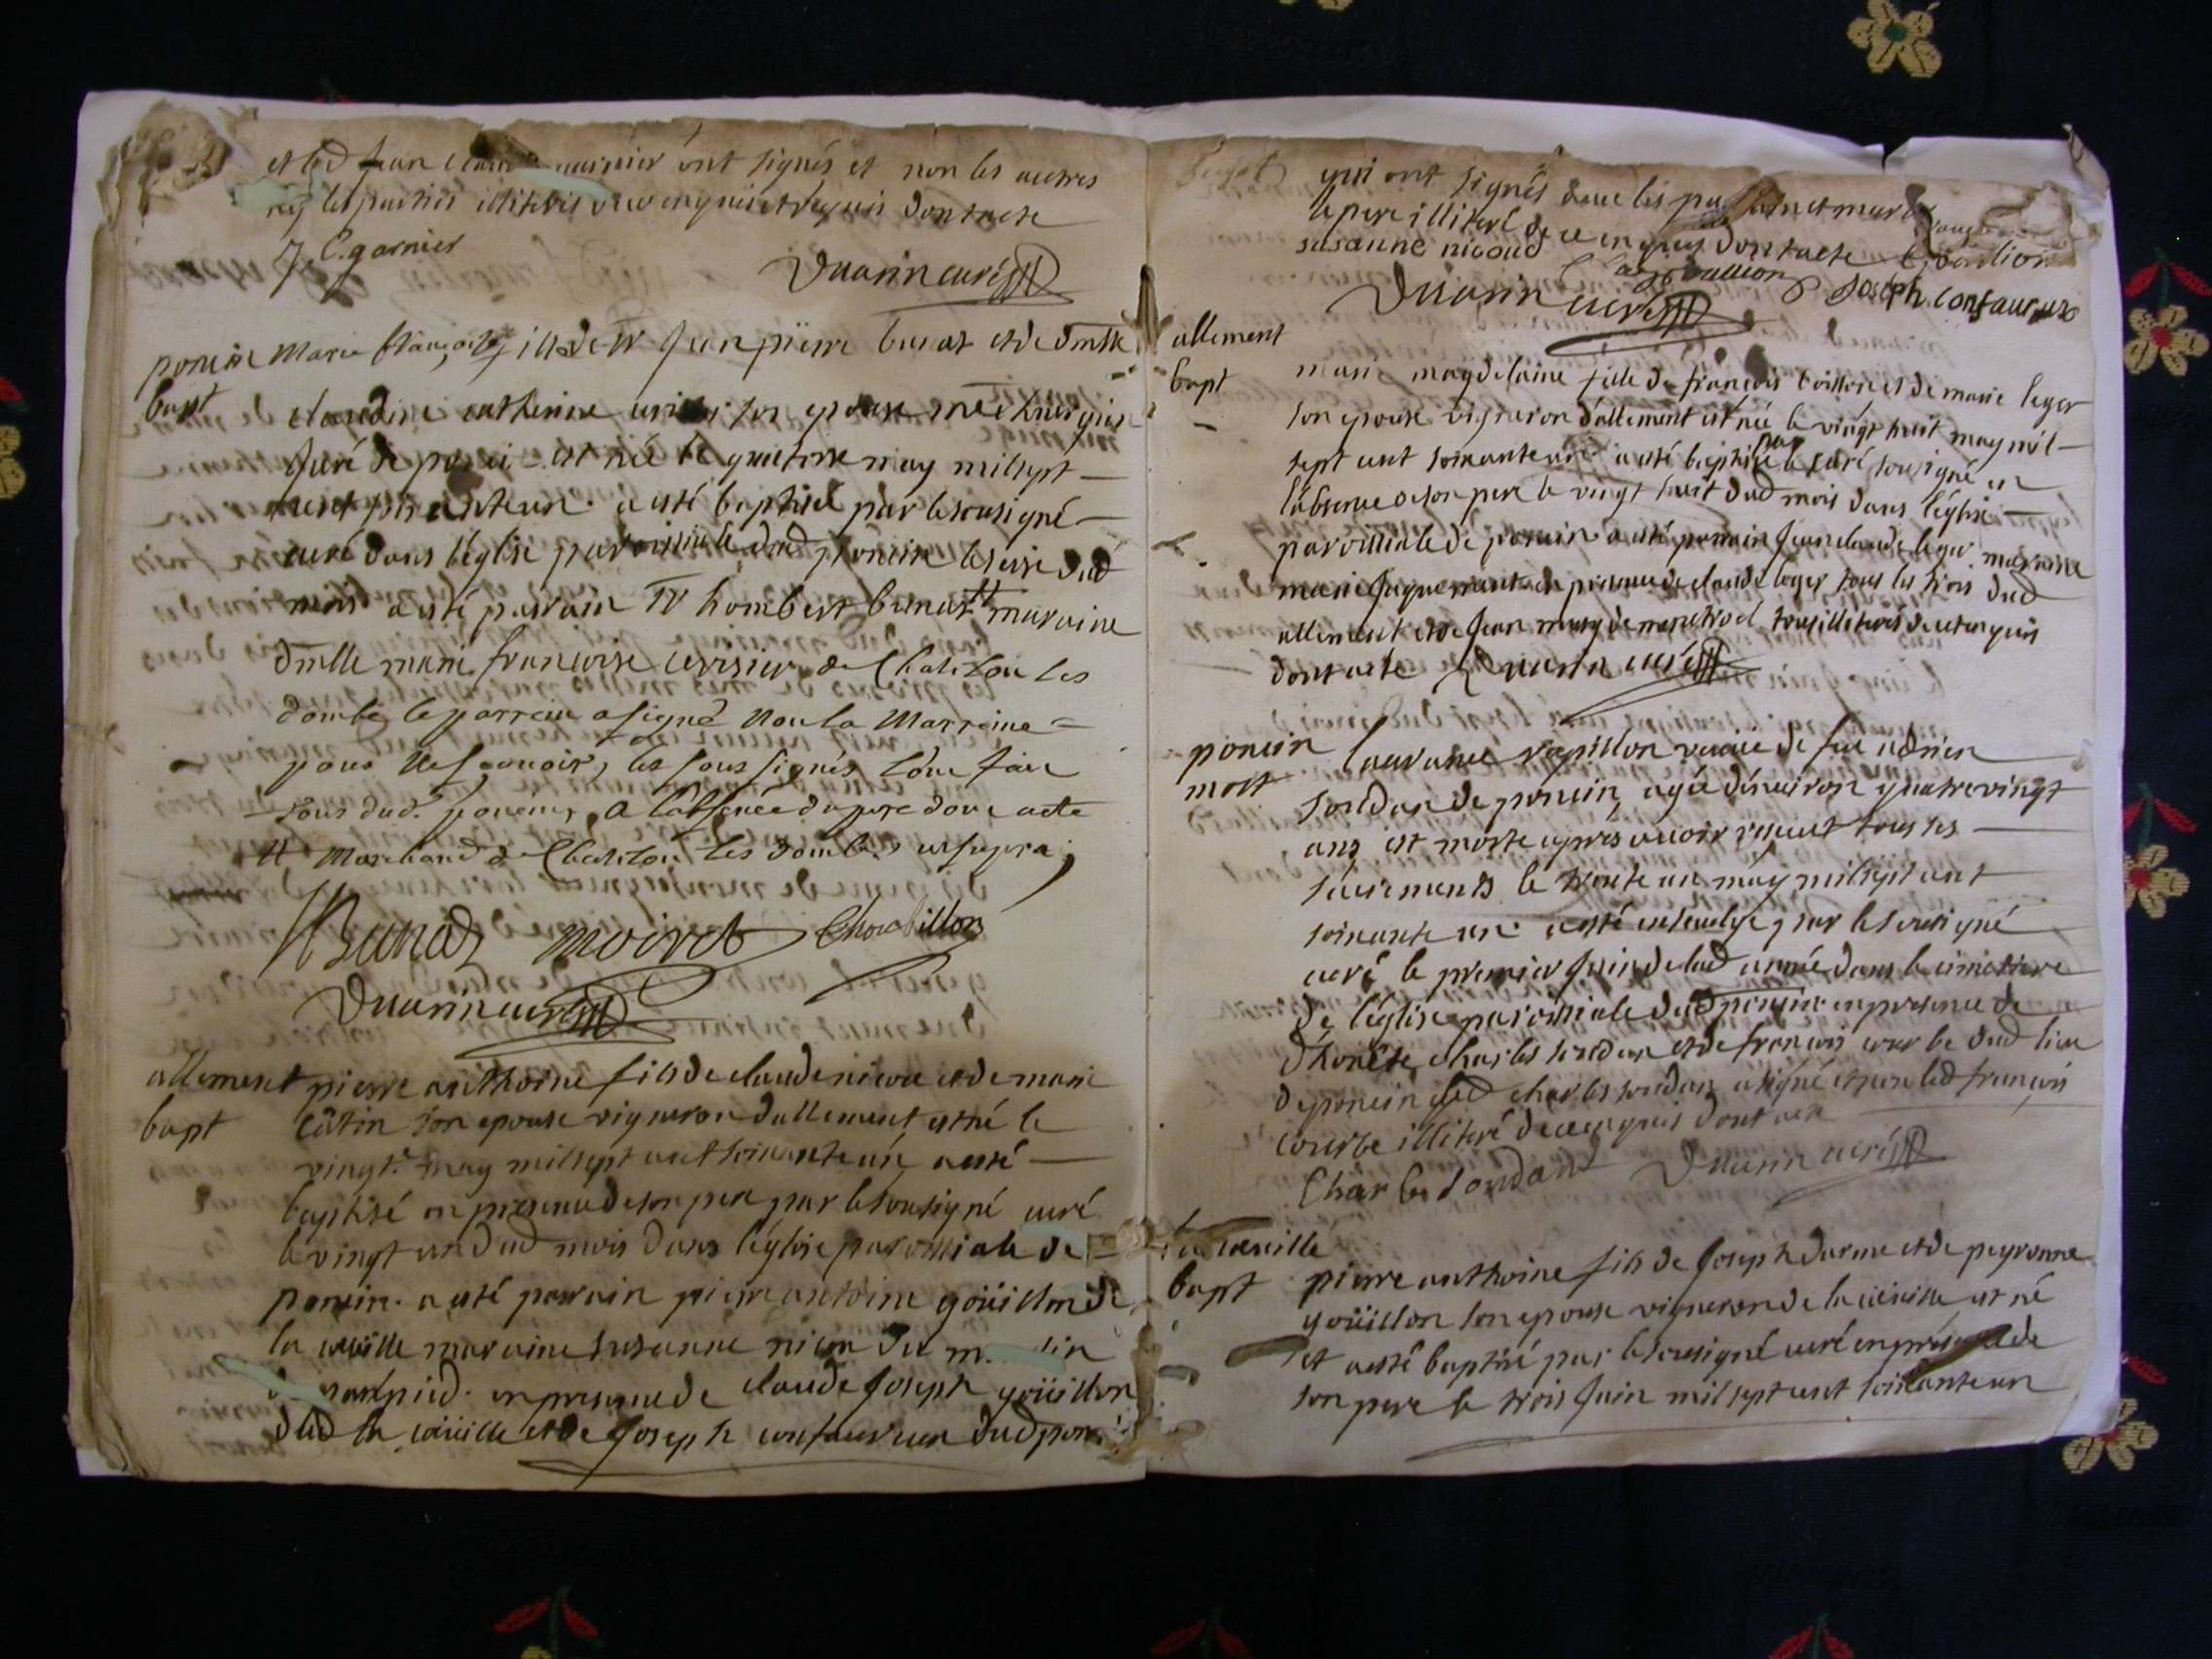 et led jean claude garnier ont signés et non les autres
ny les parties illiterés de ce enquis et requis dont acte
J. C. garnier
Duarin curé
poncin
bapt
marie françoise fille de Sr jean pierre bunat et de dmlle
claudine catherine son epouse me chirurgien
juré de poncin est née le quatorze may mil sept
cent soixante un. a esté baptisée par le sousigné
curé dans l'église paroissiale dud poncin le seize dud
mois a esté parrain Sr hombert bunat # maraine
dmlle marie francoise cerisier de Chatillon les
dombe le parrein a signé non la Marreine
pour ne sçavoir, les sous signés l'ont fait
tous dud. poncin, a l'absence du pere dont acte
# Marchand de Chatillon les dombes ut supra
HBunat moiret Chatillon
Duarin curé
allement
bapt
pierre anthoine fils de claude nicou et de marie
câtin son epouse vigneron dallement est né le
vingt. may mil sept cent soixante un, a esté
baptisé en presence de son pere par le sousigné curé
le vingt un dud mois dans l'église paroissiale de
poncin. a esté parrain pierre antoine goüillon de
la cueille maraine susanne nicou du
en presence de claude joseph goüillon
dud la cueille et de joseph confavreux dud poncin
qui ont signés avec les parrain et maraine
le pere illiteré de ce enquis dont acte
susanne nicoud goullion joseph confavreux
Duarin curé
allement
bapt
marie magdelaine fille de françois goillon et de marie leger
son epouse vigneron dallement est née le vingt huit may mil
sept cent soixante un. a esté baptisée par le curé sousigné en
l'absence de son pere le vingt huit dud mois dans l'église
paroissiale de poncin a esté parrain jean claude leger maraine
marie en presence de claude leger tous les trois dud
allement et de jean tous illiterés de ce enquis
dont acte Duarin curé
poncin
mort
laurance rapillon veuve de feu adrien
soudan de poncin, agée d'environ quatre vingt
ans est morte apres avoir reçeut tous ses
sacrements le trente un may mil sept cent
soixante un. a esté ensevelye par le sousigné
curé le premier juin de lad année dans le cimetiere
de l'église paroissiale dud poncin en presence de
d'honête charles soudan et de francois courbe dud lieu
de poncin led charles soudan a signé et non led françois
courbe illiteré de ce enquis dont acte
Charles soudant Duarin curé
la cueille
bapt
pierre anthoine fils de joseph darme et de peyronne
goüillon son epouse vigneron de la cüeille est né
et a esté baptisé par le sousigné curé en présence de
son pere le trois juin mil sept cent soixante un